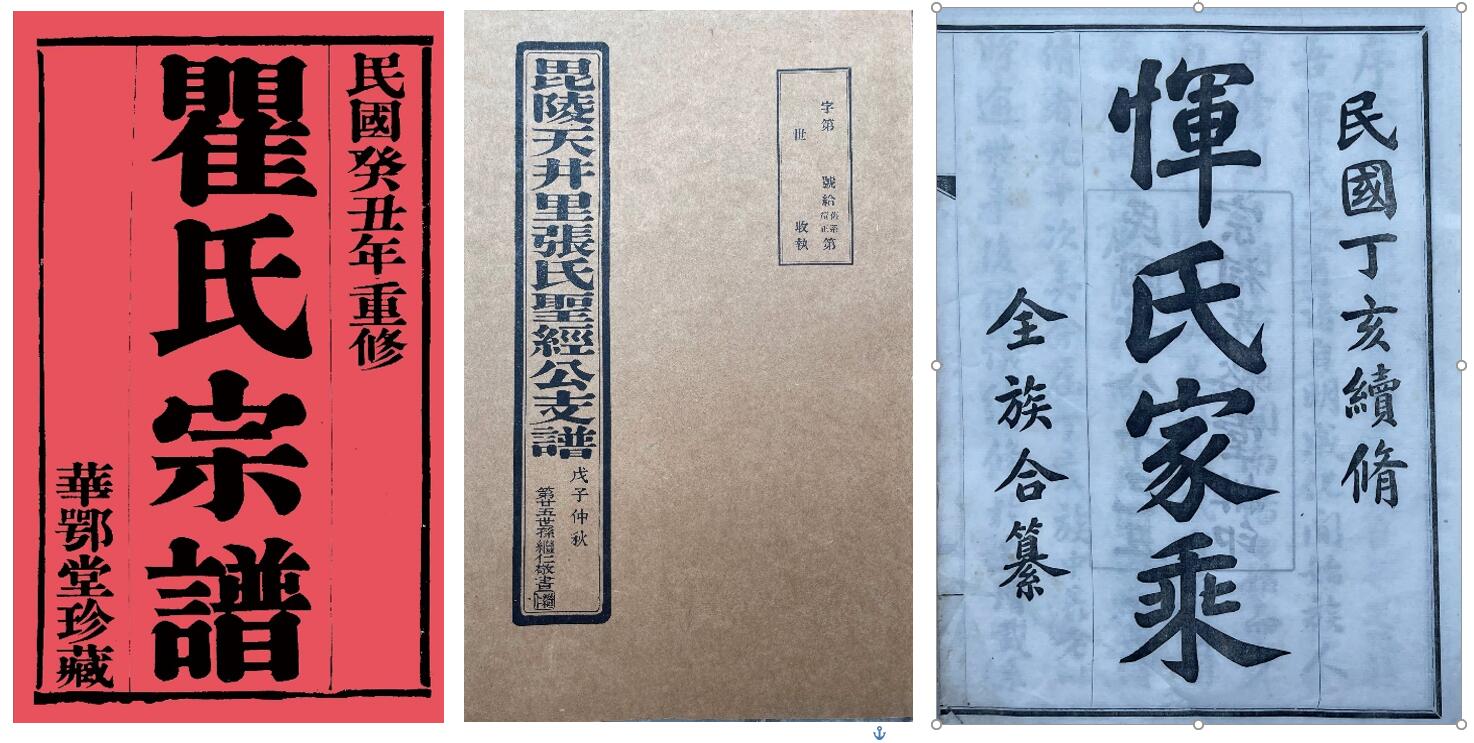 民國癸丑年重修
瞿氏宗譜
華鄂堂珍藏
字第 號給 第
世 收執
毘陵天井里張氏聖經公支譜
戊子仲秋
第廿五世孫繼仁敬書
民國丁亥續脩
惲氏家乘
全族合纂